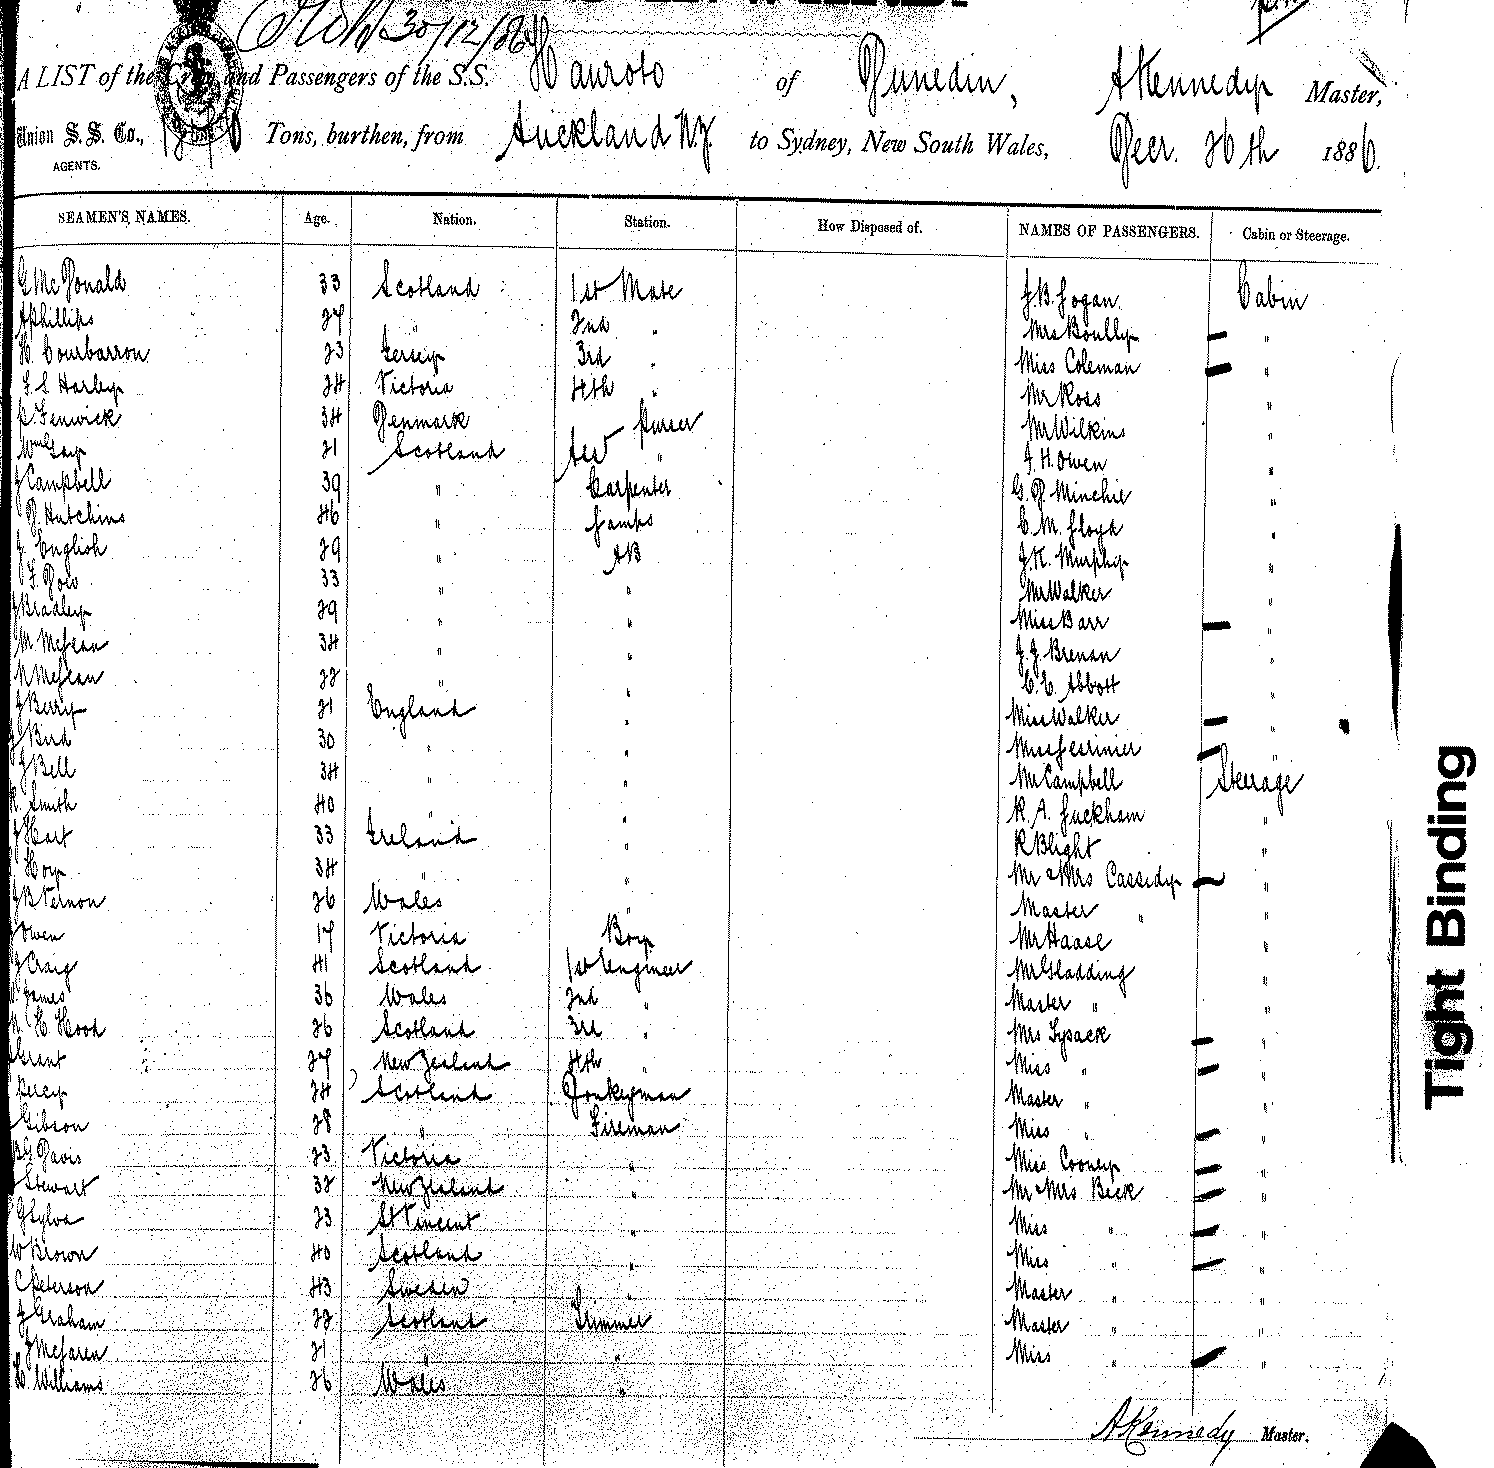 30/12/86
A LIST of the Crew and Passengers of the S.S. Hauroto of Dunedin, A Kennedy Master,
Union S. S. Co., Tons, burthen, from Auckland N.Z. to Sydney, New South Wales, Decr. 26th 1886.
AGENTS.
SEAMEN'S NAMES. Age. Nation. Station. How Disposed of. NAMES OF PASSENGERS. Cabin or Steerage.
G McDonald 33 Scotland 1st Mate J. B. Logan Cabin
A Phillips 27 " 2nd " Mrs Boully "
H. Courbarron 23 Jersey 3rd " Miss Coleman "
24 Victoria 4th " Mr Ross "
Fenwick 34 Denmark Purser Mr Wilkins "
Wm Gay 21 Scotland Asst " J. H. Owen "
J Campbell 39 " Carpenter G. D. Minchie "
D. Hutchins 46 " Lamps C. M. Lloyd "
J. English 29 " AB J. K. Murphy "
F. Dow 33 " " Mr Walker "
J Bradley 29 " " Miss Barr "
M McLean 34 " " J. J. Brenan "
N McLean 22 " " C. C. Abbott "
J Berry 21 England " Miss Walker "
J Bird 30 " " Miss "
J Bell 34 " " Mr Campbell Steerage
R. Smith 40 " " R. A. Luckham "
J Hart 33 Ireland " R Blight "
Hoy 34 " " Mr & Mrs Cassidy "
J B Vernon 26 Wales " Master " "
J Owen 17 Victoria Boy Mr Haase "
J Craig 41 Scotland 1st Engineer Mr Gladding "
James 36 Wales 2nd " Master " "
H Hood 26 Scotland 3rd " Mrs Lysack "
Grant 27 New Zealand 4th " Miss " "
Percy 24 Scotland Donkeyman Master " "
Gibson 28 " Fireman Miss " "
Davis 23 Victoria " Miss Cooney "
Stewart 32 New Zealand " Mr & Mrs Beck "
G Sylva 23 St Vincent " Miss " "
W Brown 40 Scotland " Miss " "
C Peterson 43 Sweden " Master " "
J Graham 22 Scotland Trimmer Master " "
J McLaren 21 " " Miss " "
Williams 26 Wales "
A Kennedy Master.
Tight Binding